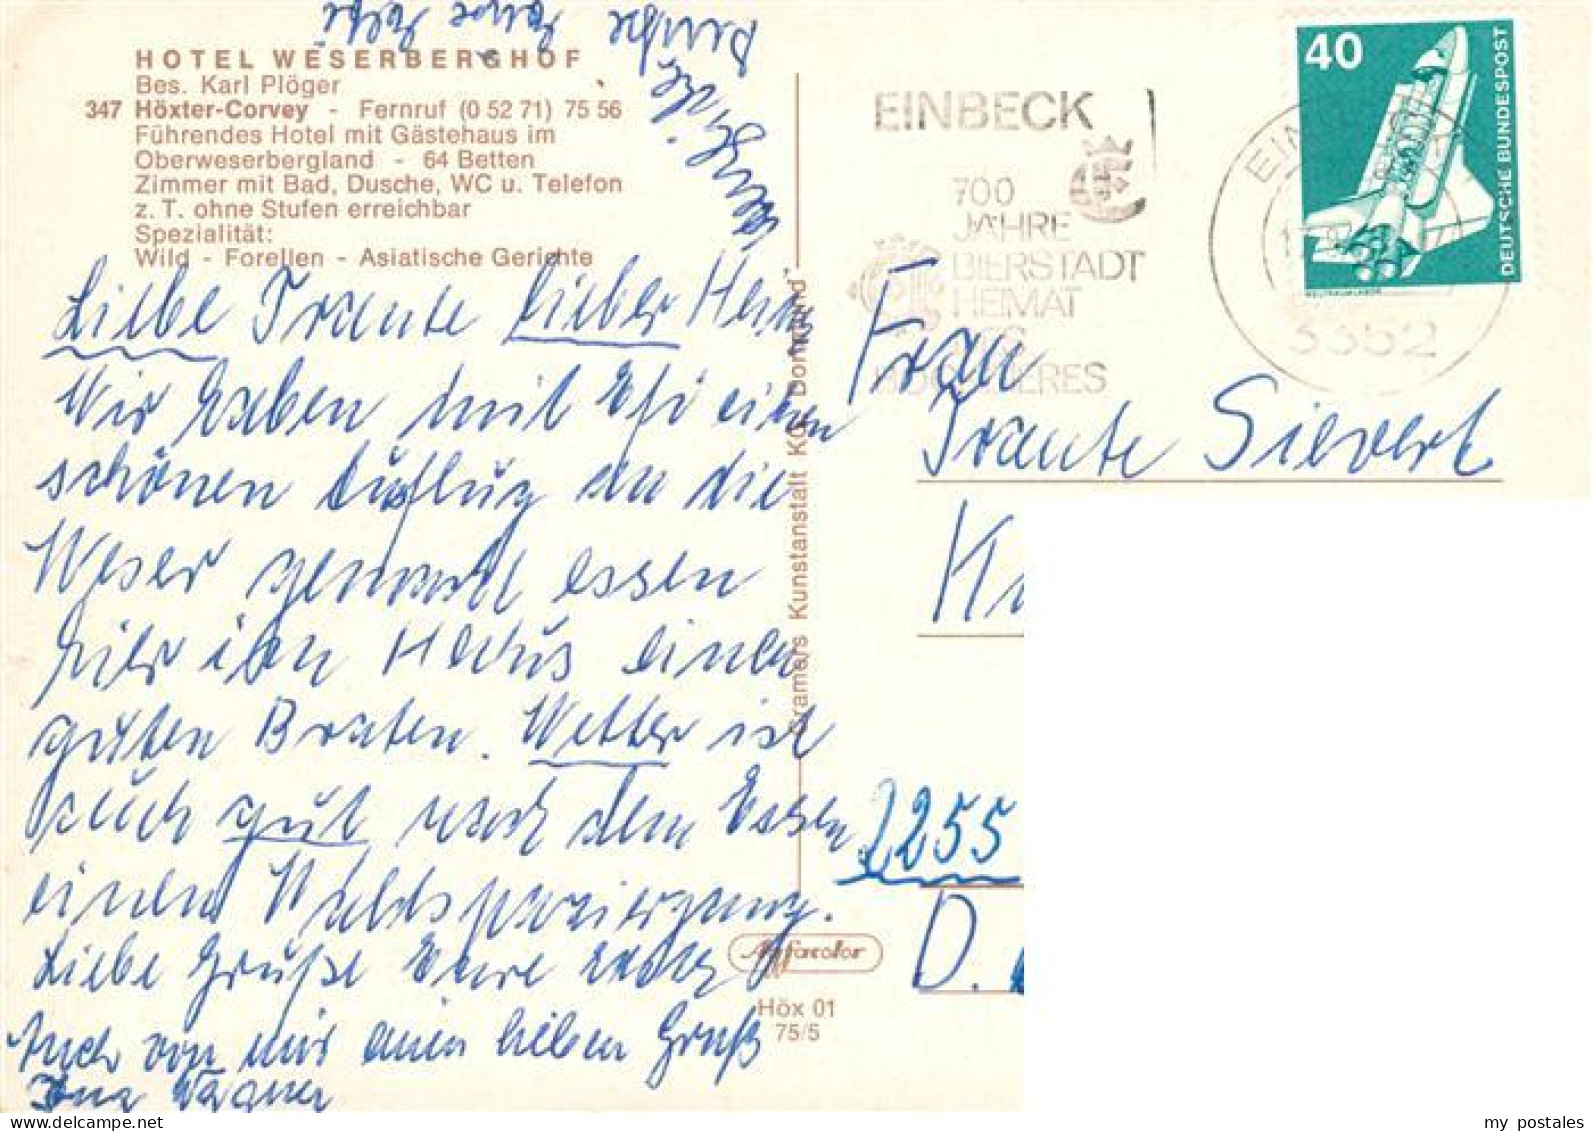 HOTEL WESERBERGHOF
Bes. Karl Plöger
347 Höxter-Corvey - Fernruf (0 52 71) 75 56
Führendes Hotel mit Gästehaus im
Oberweserbergland - 64 Betten
Zimmer mit Bad, Dusche, WC u. Telefon
z. T. ohne Stufen erreichbar
Spezialität:
Wild - Forellen - Asiatische Gerichte
Liebe Traute lieber Heinz
Wir haben mit Efi einen
schönen Ausflug an die
Weser gemacht essen
hier im Haus einen
guten Braten. Wetter ist
auch gut nach dem Essen
einen Waldspaziergang.
Liebe Grüße Eure
Auch von mir einen lieben Gruß
Ina Wagner
Cramers Kunstanstalt KG, Dortmund
Agfacolor
Höx 01
75/5
EINBECK
700
JAHRE
BIERSTADT
HEIMAT
DES
40
DEUTSCHE BUNDESPOST
3352
Frau
Traute Sievert
2255
D.
my postales